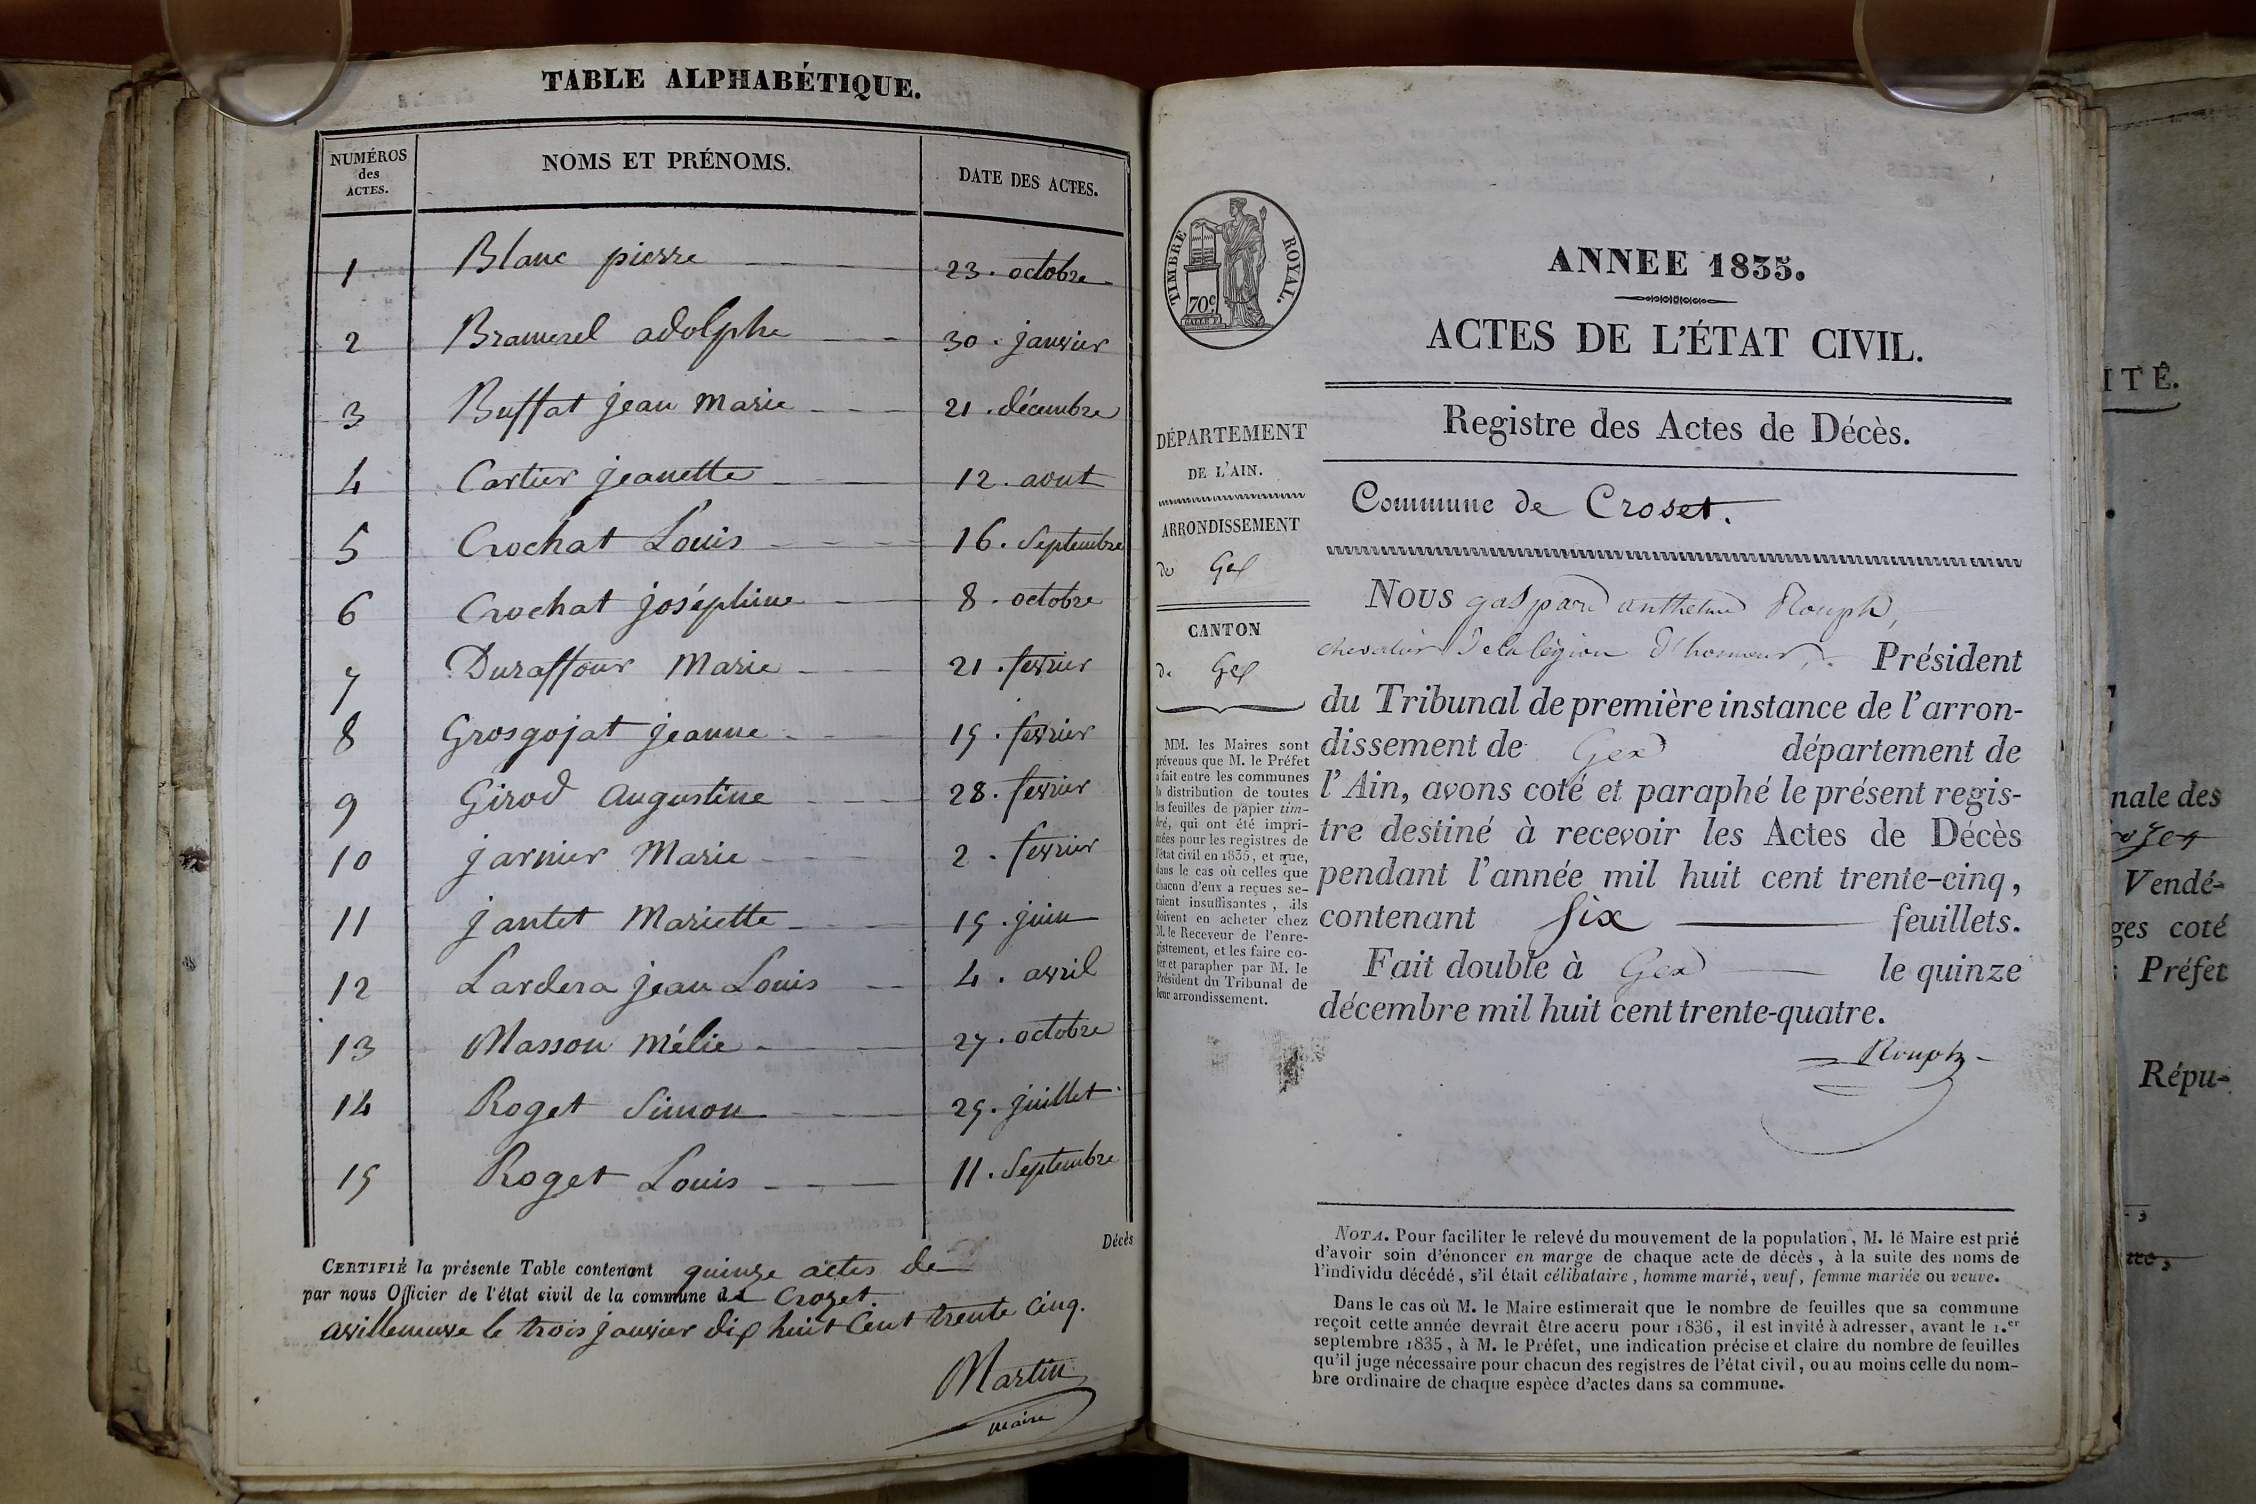 TABLE ALPHABÉTIQUE.
NUMÉROS des ACTES. NOMS ET PRÉNOMS. DATE DES ACTES.
1 Blanc pierre 23. octobre
2 Bramerel adolphe 30. janvier
3 Buffat jean Marie 21. décembre
4 Cartier jeanette 12. aout
5 Crochat Louis 16. Septembre
6 Crochat joséphine 8. octobre
7 Duraffour Marie 21. fevrier
8 Grosgojat jeanne 15. fevrier
9 Girod Augustine 28. fevrier
10 jarnier Marie 2. fevrier
11 jantet Mariette 15. juin
12 Lardera jean Louis 4. avril
13 Masson Mélie 27. octobre
14 Roget Simon 25. juillet
15 Roget Louis 11. Septembre
Décès
CERTIFIÉ la présente Table contenant quinze actes de
par nous Officier de l'état civil de la commune de Crozet.
avilleneuve le trois janvier dix huit Cent trente Cinq.
Martin
maire
TIMBRE ROYAL.
70c
ANNEE 1835.
ACTES DE L'ÉTAT CIVIL.
Registre des Actes de Décès.
Commune de Croset.
DÉPARTEMENT
DE L'AIN.
ARRONDISSEMENT
de Gex
CANTON
de Gex
MM. les Maires sont
prévenus que M. le Préfet
a fait entre les communes
la distribution de toutes
les feuilles de papier tim-
bré, qui ont été impri-
mées pour les registres de
l'état civil en 1835, et que,
dans le cas où celles que
chacun d'eux a reçues se-
raient insuffisantes, ils
doivent en acheter chez
M. le Receveur de l'enre-
gistrement, et les faire co-
ter et parapher par M. le
Président du Tribunal de
leur arrondissement.
NOUS gaspard anthelme Rouph,
chevalier de la légion d'honneur, Président
du Tribunal de première instance de l'arron-
dissement de Gex département de
l'Ain, avons coté et paraphé le présent regis-
tre destiné à recevoir les Actes de Décès
pendant l'année mil huit cent trente-cinq,
contenant Six feuillets.
Fait double à Gex le quinze
décembre mil huit cent trente-quatre.
Rouph
NOTA. Pour faciliter le relevé du mouvement de la population, M. le Maire est prié
d'avoir soin d'énoncer en marge de chaque acte de décès, à la suite des noms de
l'individu décédé, s'il était célibataire, homme marié, veuf, femme mariée ou veuve.
Dans le cas où M. le Maire estimerait que le nombre de feuilles que sa commune
reçoit cette année devrait être accru pour 1836, il est invité à adresser, avant le 1.er
septembre 1835, à M. le Préfet, une indication précise et claire du nombre de feuilles
qu'il juge nécessaire pour chacun des registres de l'état civil, ou au moins celle du nom-
bre ordinaire de chaque espèce d'actes dans sa commune.
ITÉ.
nale des
Vendé-
ges coté
Préfet
Répu-